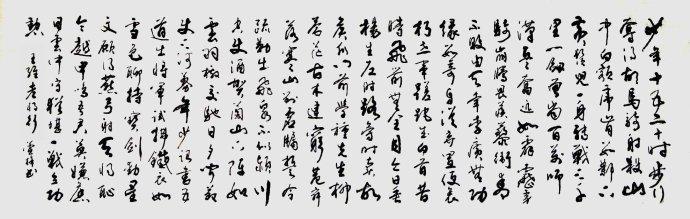 少年十五二十时步行
夺得胡马骑射杀山
中白额虎肯数邺下
黄须儿一身转战三千
里一剑曾当百万师
汉兵奋迅如霹雳虏
骑崩腾畏蒺藜卫青
不败由天幸李广无功
缘数奇自从弃置便衰
朽世事蹉跎成白首昔
时飞箭无全目今日垂
杨生左肘路旁时卖故
侯瓜门前学种先生柳
苍茫古木连穷巷寥
落寒山对虚牖誓令
疏勒出飞泉不似颍川
空使酒贺兰山下阵如
云羽檄交驰日夕闻节
使三河募年少诏书五
道出将军试拂铁衣如
雪色聊持宝剑动星
文愿得燕弓射天将耻
令越甲鸣吾君莫嫌旧
日云中守犹堪一战立功
勋 王维老将行 书